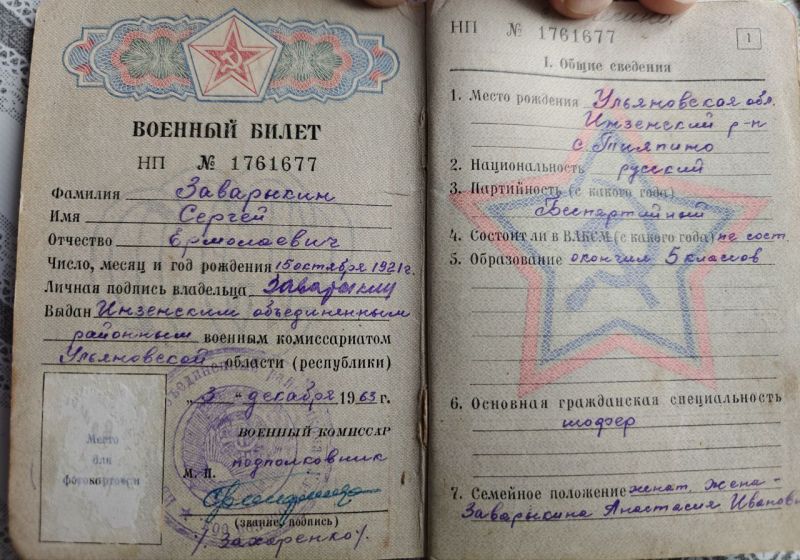 ВОЕННЫЙ БИЛЕТ
НП № 1761677
Фамилия Заварыкин
Имя Сергей
Отчество Ермолаевич
Число, месяц и год рождения 15 октября 1921 г.
Личная подпись владельца Заварыкин
Выдан Инзенским объединенным
районным военным комиссариатом
Ульяновской области (республики)
„3" декабря 1963 г.
ВОЕННЫЙ КОМИССАР
подполковник
М. П.
(звание, подпись)
/Захаренко/.
Место
для
фотокарточки
НП № 1761677
1
I. Общие сведения
1. Место рождения Ульяновская обл.
Инзенский р-н
с. Тияпино
2. Национальность русский
3. Партийность (с какого года)
Беспартийный
4. Состоит ли в ВЛКСМ (с какого года) не сост.
5. Образование окончил 5 классов
6. Основная гражданская специальность
шофер
7. Семейное положение женат, жена -
Заварыкина Анастасия Иванов